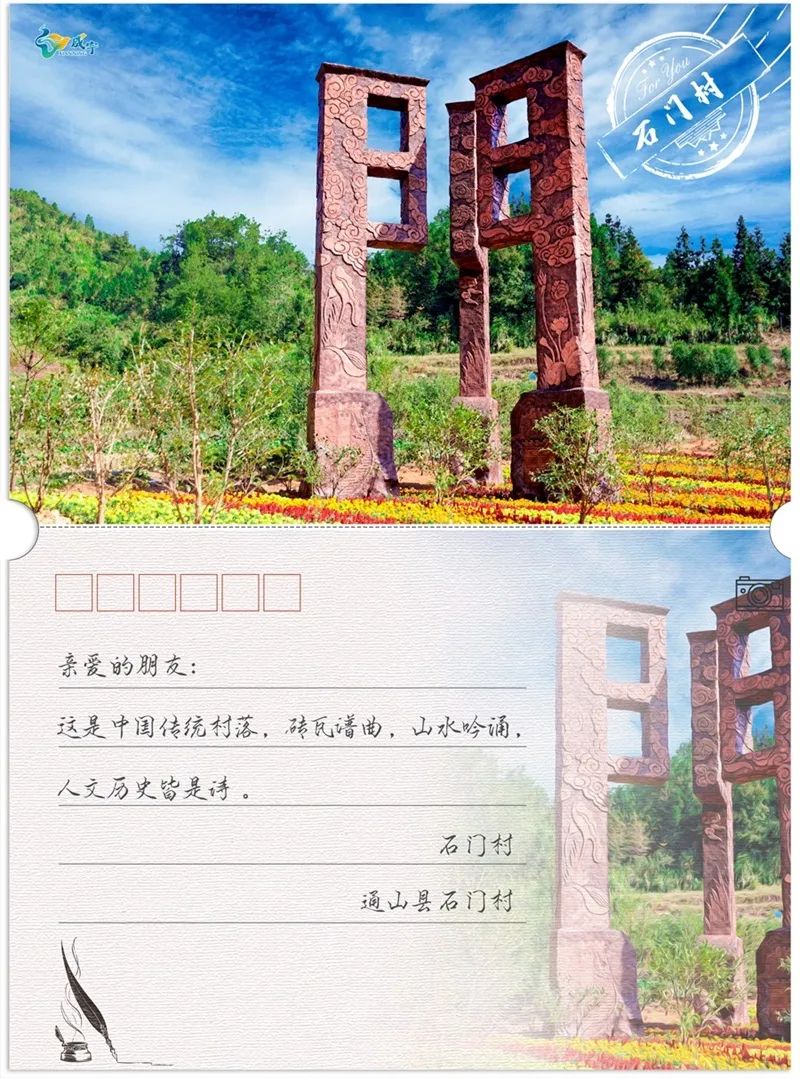 咸宁
For You
石门村
亲爱的朋友：
这是中国传统村落，砖瓦谱曲，山水吟诵，
人文历史皆是诗。
石门村
通山县石门村